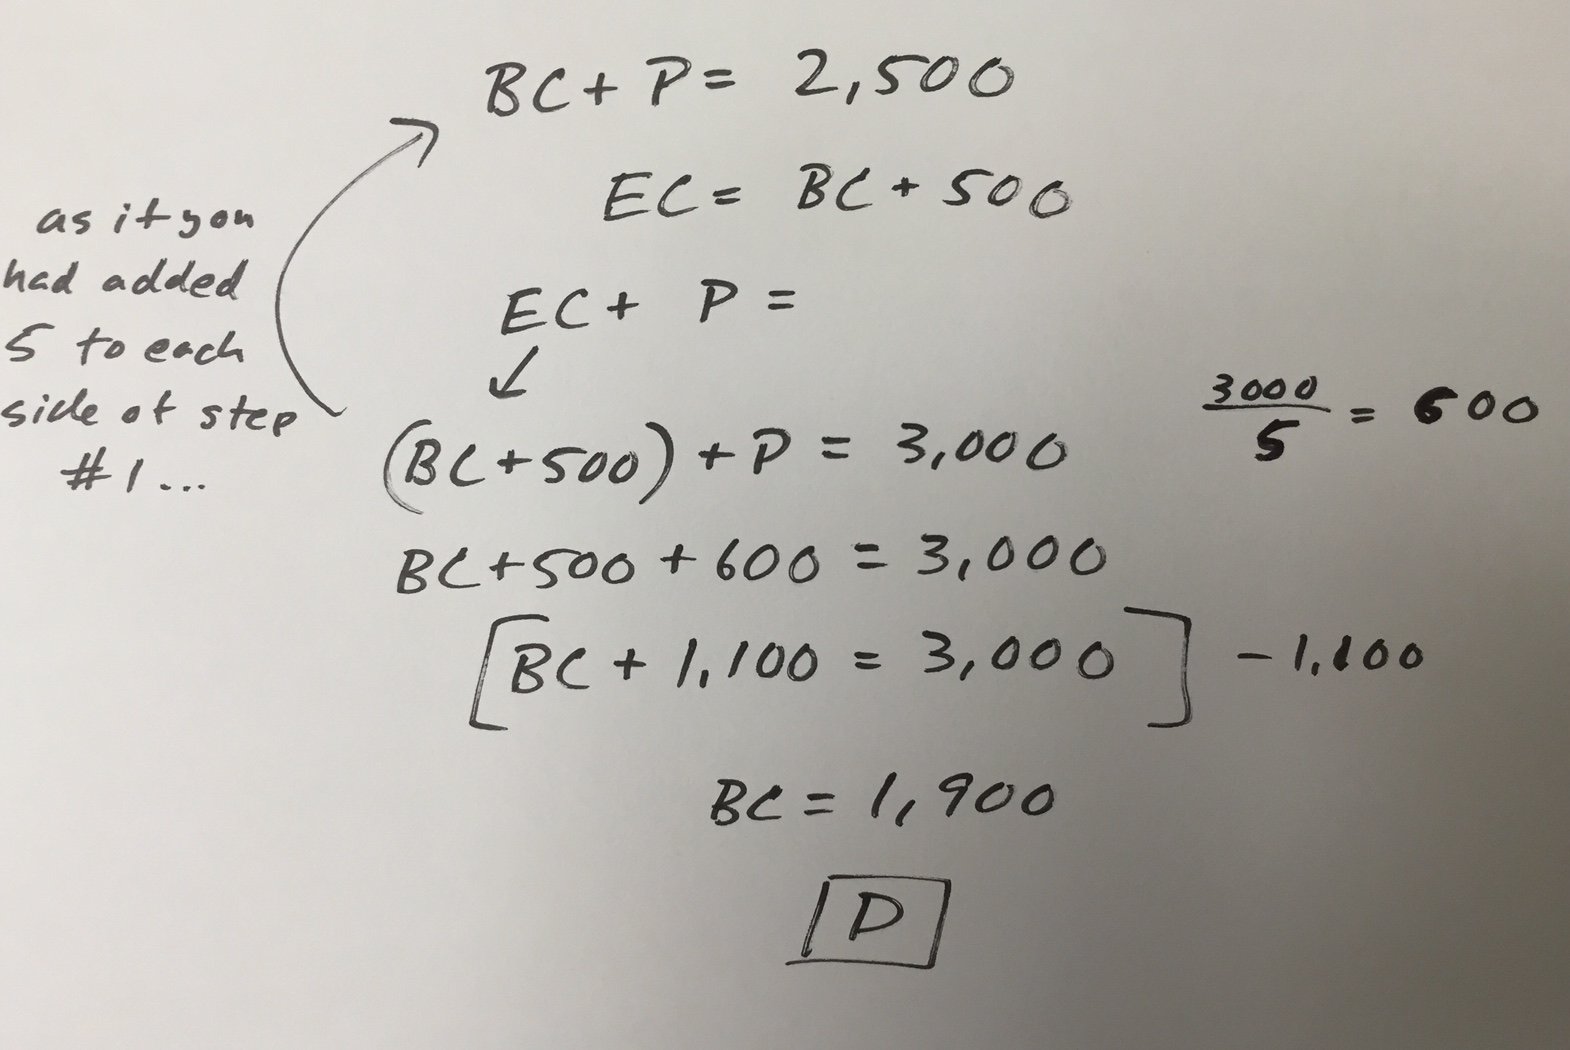 BC + P = 2,500
EC = BC + 500
EC + P =
(BC + 500) + P = 3,000
as if you
had added
5 to each
side of step
#1...
3000
5
= 600
BC + 500 + 600 = 3,000
[BC + 1,100 = 3,000] - 1,100
BC = 1,900
D